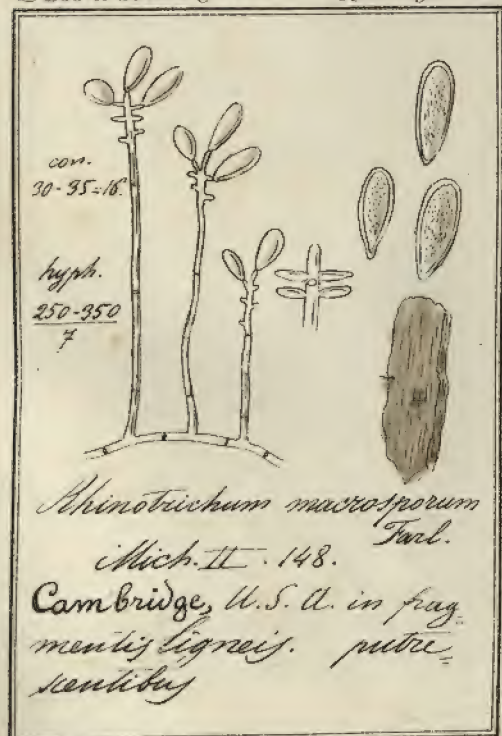 con.
30-35=16.
hyph.
250-350
7
Rhinotrichum macrosporum
Farl.
Mich. II. 148.
Cambridge, U.S.A. in frag-
mentis ligneis. putre-
scentibus